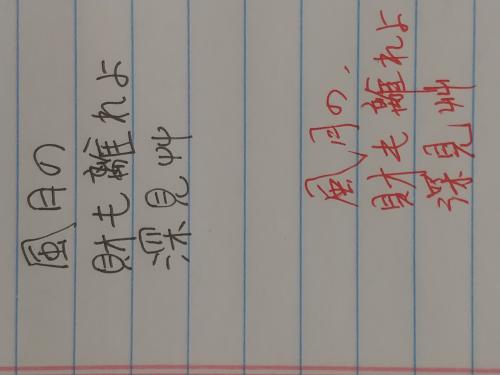 風月の
財も離れよ
深見艸
風月の、
財も離れよ
深見艸